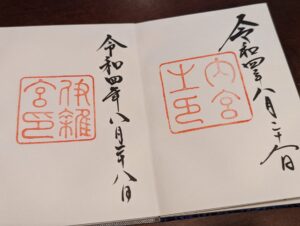 令和四年八月二十八日
内宮
之印
令和四年八月二十八日
伊雜
宮印